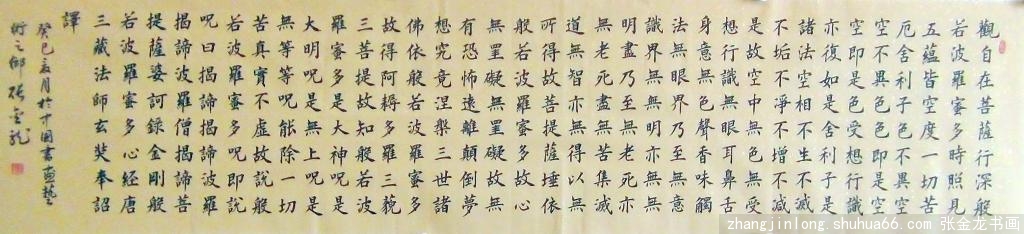 觀自在菩薩行深般
若波羅蜜多時照見
五蘊皆空度一切苦
厄舍利子色不異空
空不異色色即是空
空即是色受想行識
亦復如是舍利子是
諸法空相不生不滅
不垢不淨不增不減
是故空中無色無受
想行識無眼耳鼻舌
身意無色聲香味觸
法無眼界乃至無意
識界無無明亦無無
明盡乃至無老死亦
無老死盡無苦集滅
道無智亦無得以無
所得故菩提薩埵依
般若波羅蜜多故心
無罣礙無罣礙故無
有恐怖遠離顛倒夢
想究竟涅槃三世諸
佛依般若波羅蜜多
故得阿耨多羅三藐
三菩提故知般若波
羅蜜多是大神呪是
大明呪是無上呪是
無等等呪能除一切
苦真實不虛故說般
若波羅蜜多呪即說
呪曰揭諦揭諦波羅
揭諦波羅僧揭諦菩
提薩婆訶錄金剛般
若波羅蜜多心経唐
三藏法師玄奘奉詔
譯
癸巳亥月於中國書畫藝
術之鄉張金龍
zhangjinlong.shuhua66.com 张金龙书画